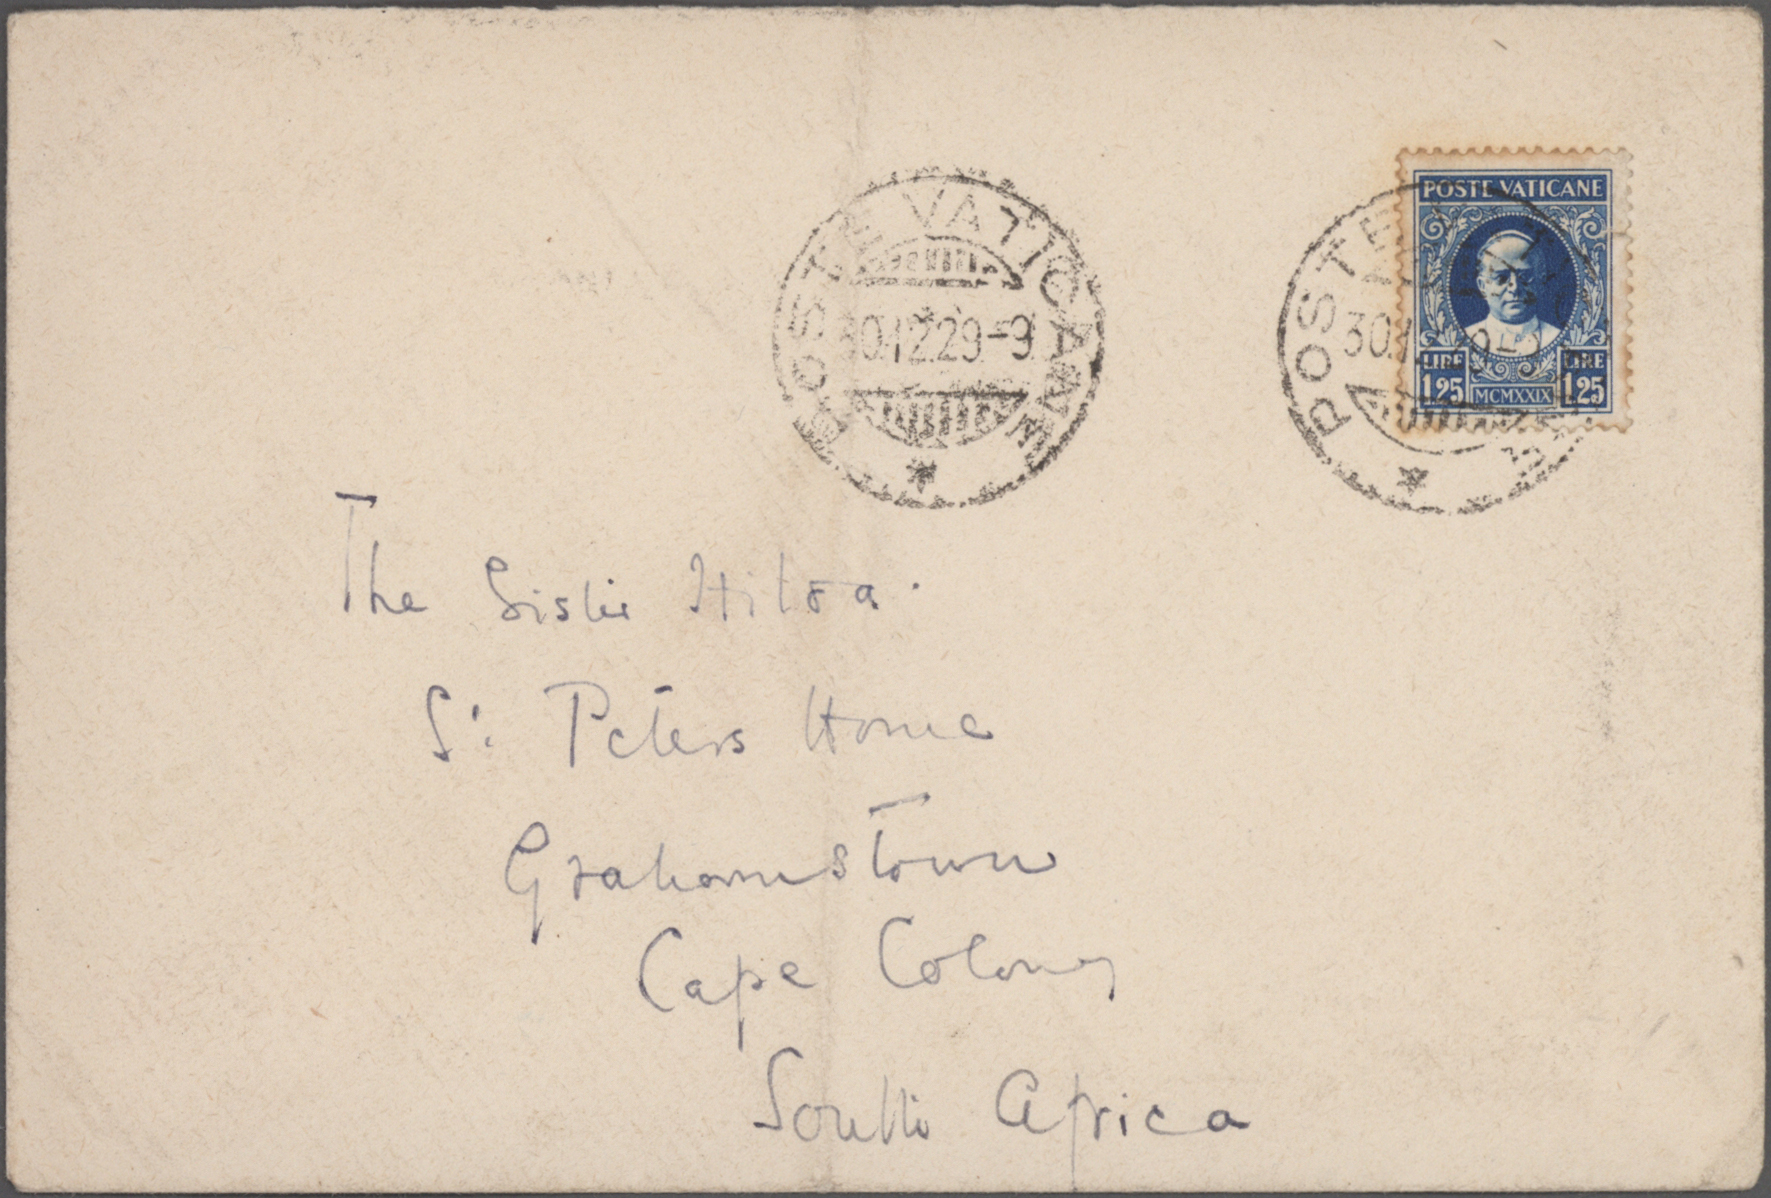 POSTE VATICANE
30.12.29-9
POSTE VATICANE
LIRE 1,25
MCMXXIX
LIRE 1,25
POSTE
30.1
The Sister
St Peters Home
Grahamstown
Cape Colony
South Africa